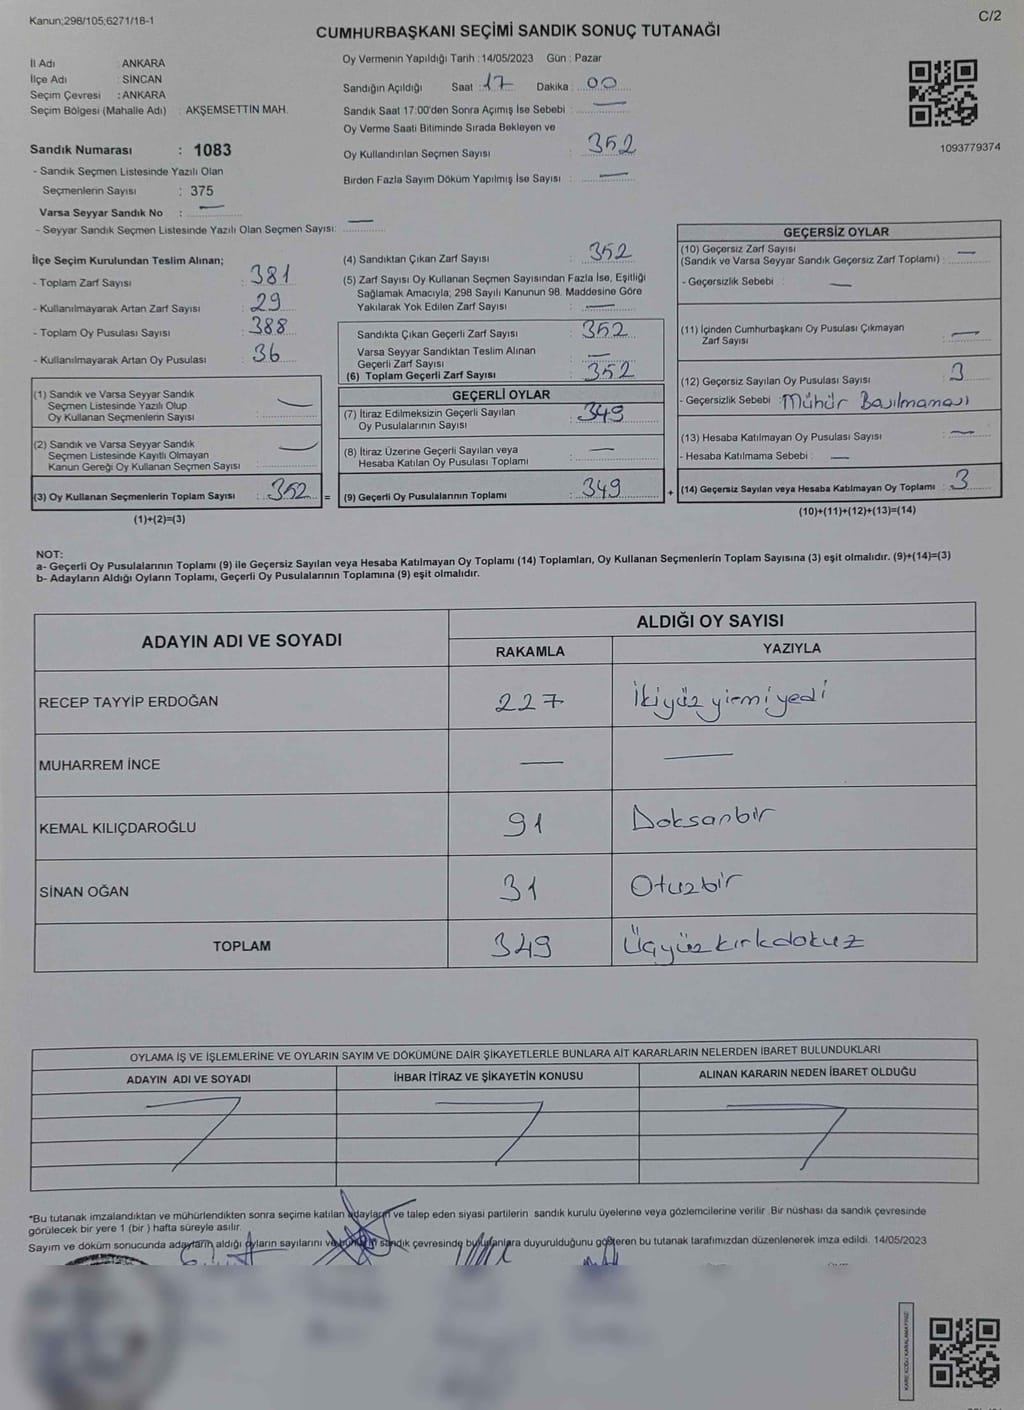 Kanun;298/105;6271/18-1
C/2
CUMHURBAŞKANI SEÇİMİ SANDIK SONUÇ TUTANAĞI
İl Adı : ANKARA
İlçe Adı : SİNCAN
Seçim Çevresi : ANKARA
Seçim Bölgesi (Mahalle Adı) : AKŞEMSETTİN MAH.
Sandık Numarası : 1083
- Sandık Seçmen Listesinde Yazılı Olan
Seçmenlerin Sayısı : 375
Varsa Seyyar Sandık No : —
- Seyyar Sandık Seçmen Listesinde Yazılı Olan Seçmen Sayısı: —
Oy Vermenin Yapıldığı Tarih : 14/05/2023 Gün : Pazar
Sandığın Açıldığı Saat : 17 Dakika : 00
Sandık Saat 17:00'den Sonra Açımış İse Sebebi : —
Oy Verme Saati Bitiminde Sırada Bekleyen ve
Oy Kullandırılan Seçmen Sayısı : 352
Birden Fazla Sayım Döküm Yapılmış İse Sayısı : —
1093779374
İlçe Seçim Kurulundan Teslim Alınan;
- Toplam Zarf Sayısı : 381
- Kullanılmayarak Artan Zarf Sayısı : 29
- Toplam Oy Pusulası Sayısı : 388
- Kullanılmayarak Artan Oy Pusulası : 36
(1) Sandık ve Varsa Seyyar Sandık
Seçmen Listesinde Yazılı Olup
Oy Kullanan Seçmenlerin Sayısı : —
(2) Sandık ve Varsa Seyyar Sandık
Seçmen Listesinde Kayıtlı Olmayan
Kanun Gereği Oy Kullanan Seçmen Sayısı : —
(3) Oy Kullanan Seçmenlerin Toplam Sayısı : 352 =
(1)+(2)=(3)
(4) Sandıktan Çıkan Zarf Sayısı : 352
(5) Zarf Sayısı Oy Kullanan Seçmen Sayısından Fazla İse, Eşitliği
Sağlamak Amacıyla; 298 Sayılı Kanunun 98. Maddesine Göre
Yakılarak Yok Edilen Zarf Sayısı : —
Sandıkta Çıkan Geçerli Zarf Sayısı : 352
Varsa Seyyar Sandıktan Teslim Alınan
Geçerli Zarf Sayısı : —
(6) Toplam Geçerli Zarf Sayısı : 352
GEÇERLİ OYLAR
(7) İtiraz Edilmeksizin Geçerli Sayılan
Oy Pusulalarının Sayısı : 349
(8) İtiraz Üzerine Geçerli Sayılan veya
Hesaba Katılan Oy Pusulası Toplamı : —
(9) Geçerli Oy Pusulalarının Toplamı : 349 +
GEÇERSİZ OYLAR
(10) Geçersiz Zarf Sayısı
(Sandık ve Varsa Seyyar Sandık Geçersiz Zarf Toplamı) : —
- Geçersizlik Sebebi : —
(11) İçinden Cumhurbaşkanı Oy Pusulası Çıkmayan
Zarf Sayısı : —
(12) Geçersiz Sayılan Oy Pusulası Sayısı : 3
- Geçersizlik Sebebi : Mühür Basılmaması
(13) Hesaba Katılmayan Oy Pusulası Sayısı : —
- Hesaba Katılmama Sebebi : —
(14) Geçersiz Sayılan veya Hesaba Katılmayan Oy Toplamı : 3
(10)+(11)+(12)+(13)=(14)
NOT:
a- Geçerli Oy Pusulalarının Toplamı (9) ile Geçersiz Sayılan veya Hesaba Katılmayan Oy Toplamı (14) Toplamları, Oy Kullanan Seçmenlerin Toplam Sayısına (3) eşit olmalıdır. (9)+(14)=(3)
b- Adayların Aldığı Oyların Toplamı, Geçerli Oy Pusulalarının Toplamına (9) eşit olmalıdır.
ADAYIN ADI VE SOYADI
ALDIĞI OY SAYISI
RAKAMLA YAZIYLA
RECEP TAYYİP ERDOĞAN 227 İkiyüzyirmiyedi
MUHARREM İNCE — —
KEMAL KILIÇDAROĞLU 91 Doksanbir
SİNAN OĞAN 31 Otuzbir
TOPLAM 349 Üçyüzkırkdokuz
OYLAMA İŞ VE İŞLEMLERİNE VE OYLARIN SAYIM VE DÖKÜMÜNE DAİR ŞİKAYETLERLE BUNLARA AİT KARARLARIN NELERDEN İBARET BULUNDUKLARI
ADAYIN ADI VE SOYADI İHBAR İTİRAZ VE ŞİKAYETİN KONUSU ALINAN KARARIN NEDEN İBARET OLDUĞU
*Bu tutanak imzalandıktan ve mühürlendikten sonra seçime katılan adayların ve talep eden siyasi partilerin sandık kurulu üyelerine veya gözlemcilerine verilir .Bir nüshası da sandık çevresinde
görülecek bir yere 1 (bir ) hafta süreyle asılır.
Sayım ve döküm sonucunda adayların aldığı oyların sayılarını ve bunun sandık çevresinde bulunanlara duyurulduğunu gösteren bu tutanak tarafımızdan düzenlenerek imza edildi. 14/05/2023